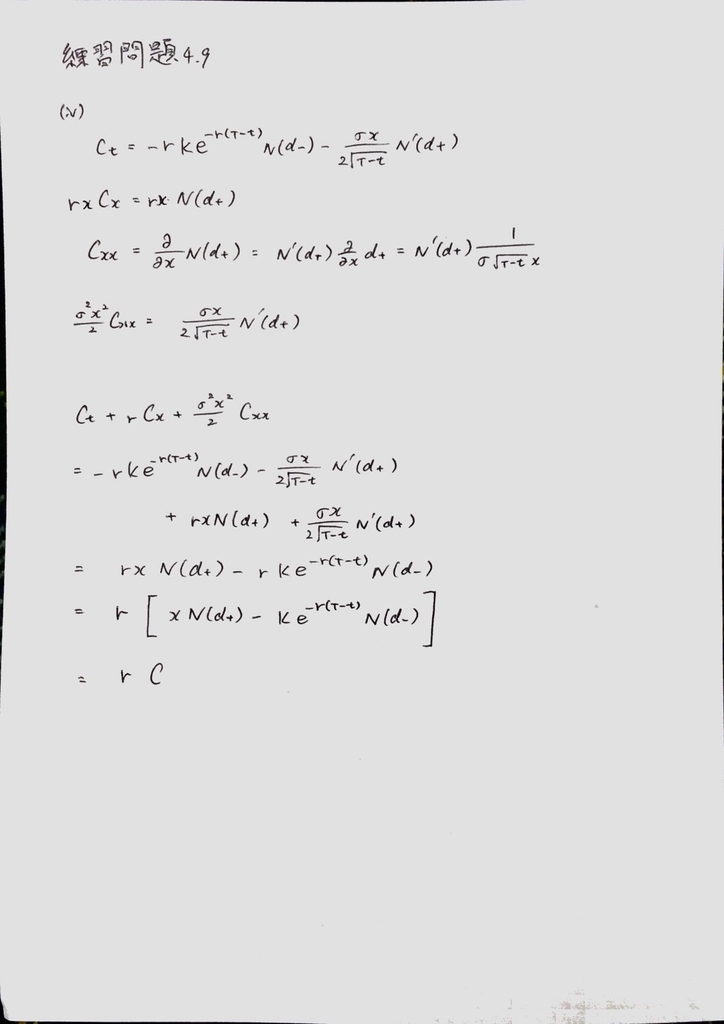 練習問題4.9
(iv)
Ct = -rKe^{-r(T-t)} N(d-) - σx/(2√(T-t)) N'(d+)
rxCx = rx N(d+)
Cxx = ∂/∂x N(d+) = N'(d+) ∂/∂x d+ = N'(d+) 1/(σ√(T-t) x)
σ²x²/2 Cxx = σx/(2√(T-t)) N'(d+)
Ct + rCx + σ²x²/2 Cxx
= -rKe^{-r(T-t)} N(d-) - σx/(2√(T-t)) N'(d+)
+ rxN(d+) + σx/(2√(T-t)) N'(d+)
= rx N(d+) - rKe^{-r(T-t)} N(d-)
= r [ x N(d+) - Ke^{-r(T-t)} N(d-) ]
= r C